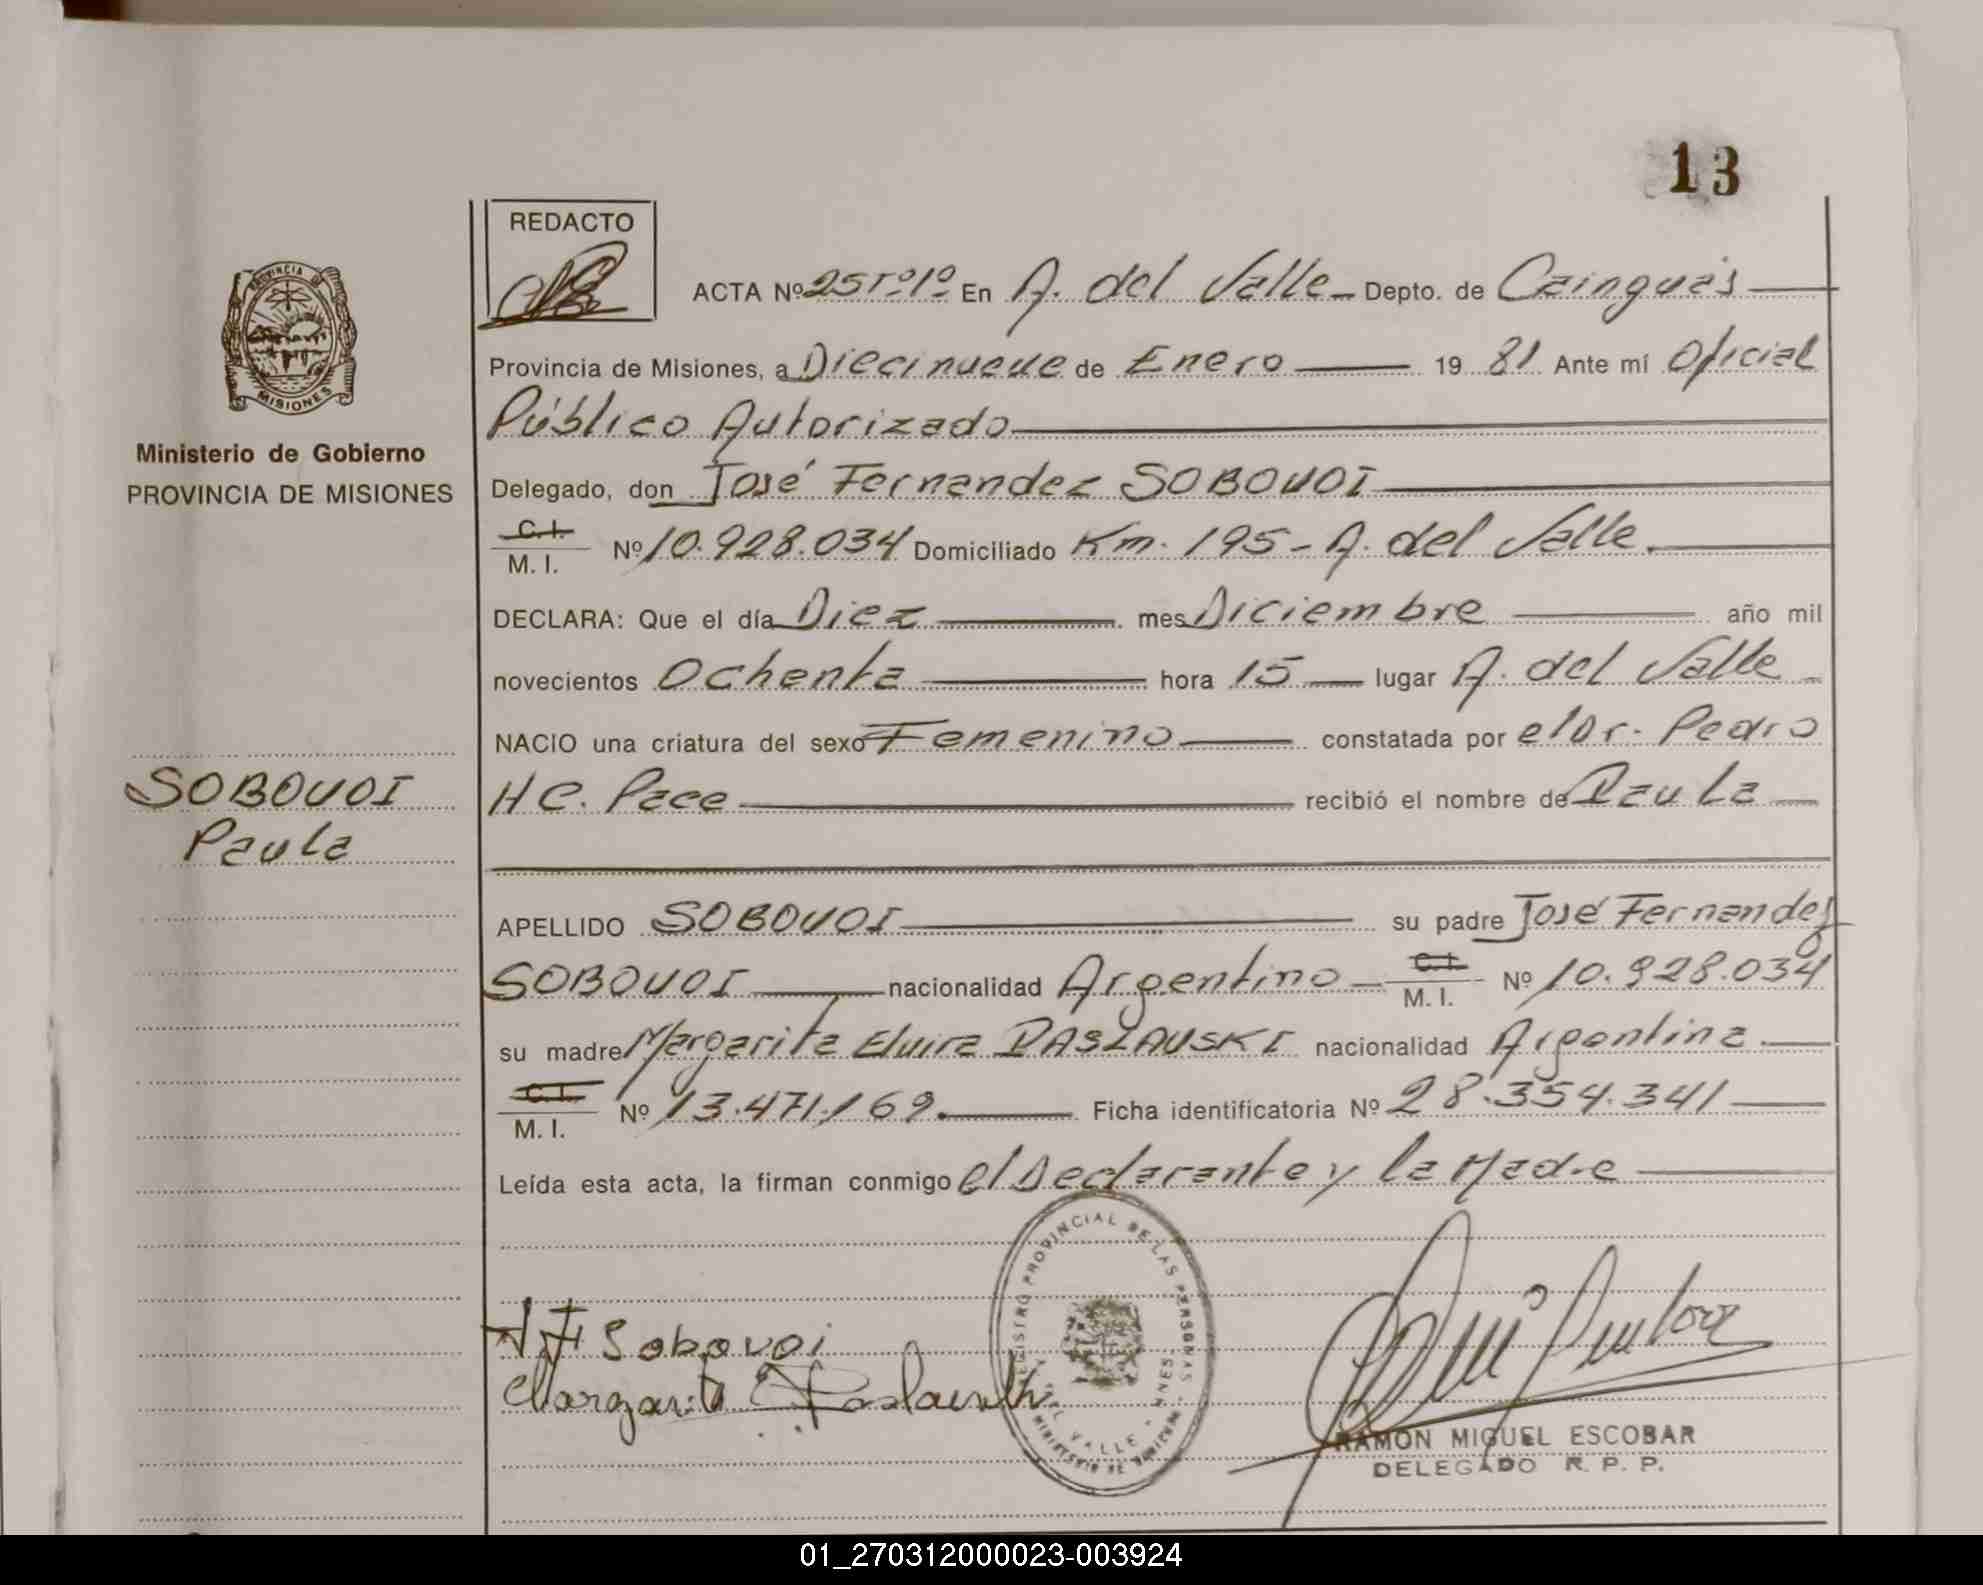 13
REDACTO
ACTA Nº 25 Tº 1º En A. del Valle Depto. de Cainguás
Provincia de Misiones, a Diecinueve de Enero 19 81 Ante mí Oficial
Público Autorizado
Delegado, don José Fernandez SOBOVOI
C.I.
M. I. Nº 10.928.034 Domiciliado Km. 195 - A. del Valle.
DECLARA: Que el día Diez mes Diciembre año mil
novecientos Ochenta hora 15 lugar A. del Valle
NACIO una criatura del sexo Femenino constatada por el Dr. Pedro
H C. Pace recibió el nombre de Paula
APELLIDO SOBOVOI su padre José Fernandez
SOBOVOI nacionalidad Argentino C.I. M. I. Nº 10.928.034
su madre Margarita Elvira PASLAUSKI nacionalidad Argentina
C.I.
M. I. Nº 13.471.169. Ficha identificatoria Nº 28.354.341
Leída esta acta, la firman conmigo el Declarante y la Madre
PROVINCIA DE
MISIONES
Ministerio de Gobierno
PROVINCIA DE MISIONES
SOBOVOI
Paula
J F Sobovoi
Margarita
REGISTRO PROVINCIAL DE LAS PERSONAS
VALLE
RAMON MIGUEL ESCOBAR
DELEGADO R. P. P.
01_270312000023-003924